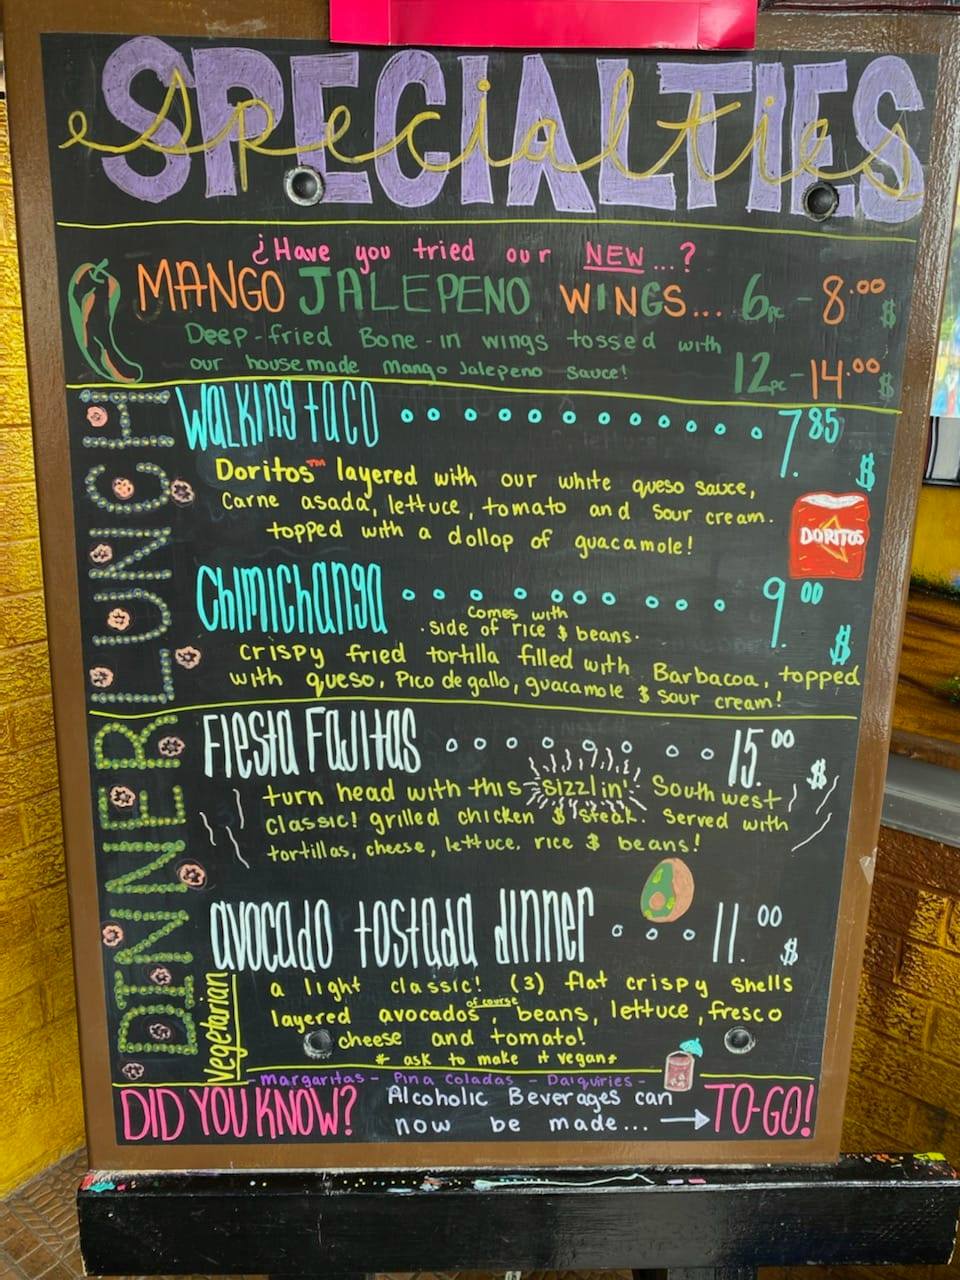 SPECIALTIES
especialties
¿Have you tried our NEW...?
MANGO JALEPENO WINGS... 6pc - 8.00 $
Deep-fried Bone-in wings tossed with
our housemade Mango Jalepeno sauce!
12pc - 14.00 $
LUNCH
Walking taco 7.85 $
Doritos™ layered with our white queso sauce,
Carne asada, lettuce, tomato and sour cream.
topped with a dollop of guacamole!
DORITOS
Chimichanga 9.00 $
Comes with
side of rice $ beans.
crispy fried tortilla filled with Barbacoa, topped
with queso, Pico de gallo, guacamole $ sour cream!
DINNER
Fiesta Fajitas 15.00 $
turn head with this sizzlin' South west
classic! grilled chicken $ steak. Served with
tortillas, cheese, lettuce, rice $ beans!
avocado tostada dinner 11.00 $
Vegetarian
a light classic! (3) flat crispy shells
of course
layered avocados, beans, lettuce, fresco
cheese and tomato!
* ask to make it vegan*
- margaritas - Pina Coladas - Daiquiries -
DID YOU KNOW? Alcoholic Beverages can
now be made... → TO-GO!